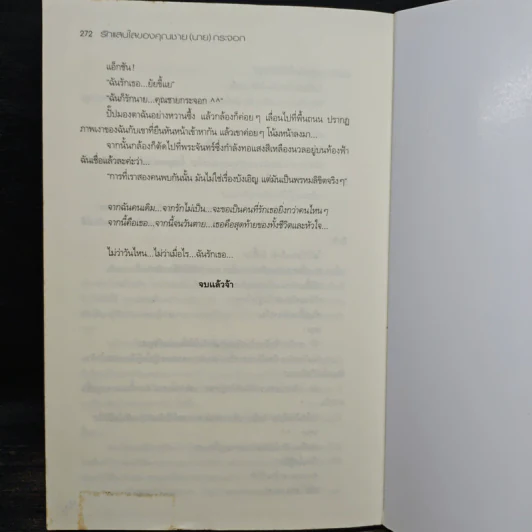 272 รักแสนใสของคุณชาย (นาย) กระจอก
แอ็กชัน !
"ฉันรักเธอ...ยัยขี้แย"
"ฉันก็รักนาย...คุณชายกระจอก ^^"
ปั๊ปมองตาฉันอย่างหวานซึ้ง แล้วกล้องก็ค่อยๆ เลื่อนไปที่พื้นถนน ปรากฏ
ภาพเงาของฉันกับเขาที่ยืนหันหน้าเข้าหากัน แล้วเขาค่อยๆ โน้มหน้าลงมา...
จากนั้นกล้องก็ตัดไปที่พระจันทร์ซึ่งกำลังทอแสงสีเหลืองนวลอยู่บนท้องฟ้า
ฉันเชื่อแล้วล่ะค่ะว่า...
"การที่เราสองคนพบกันนั้น มันไม่ใช่เรื่องบังเอิญ แต่มันเป็นพรหมลิขิตจริงๆ"
จากฉันคนเดิม...จากรักไม่เป็น...จะขอเป็นคนที่รักเธอยิ่งกว่าคนไหนๆ
จากนี้คือเธอ...จากนี้จนวันตาย...เธอคือสุดท้ายของทั้งชีวิตและหัวใจ...
ไม่ว่าวันไหน...ไม่ว่าเมื่อไร...ฉันรักเธอ...
จบแล้วจ้า